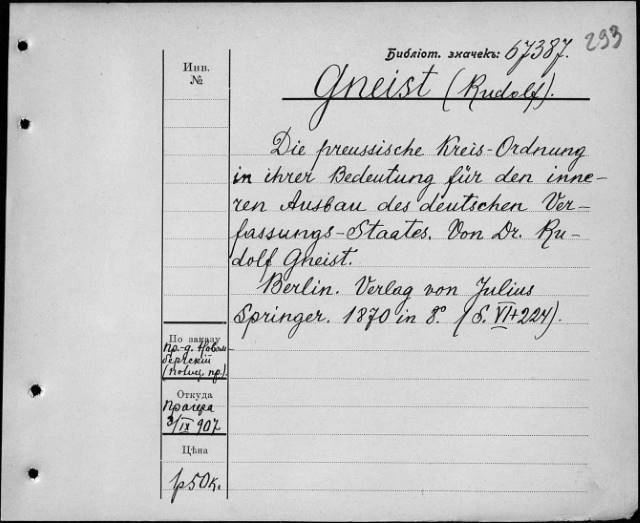 293
Библіот. значекъ: 67387.
Инв.
№
Gneist (Rudolf).
Die preussische Kreis-Ordnung
in ihrer Bedeutung für den inne-
ren Ausbau des deutschen Ver-
fassungs-Staates. Von Dr. Ru-
dolf Gneist.
Berlin. Verlag von Julius
Springer. 1870 in 8º. (S. VI+224).
По заказу
пр.
Откуда
Прагера
3/IX 907
Цѣна
1р50к.